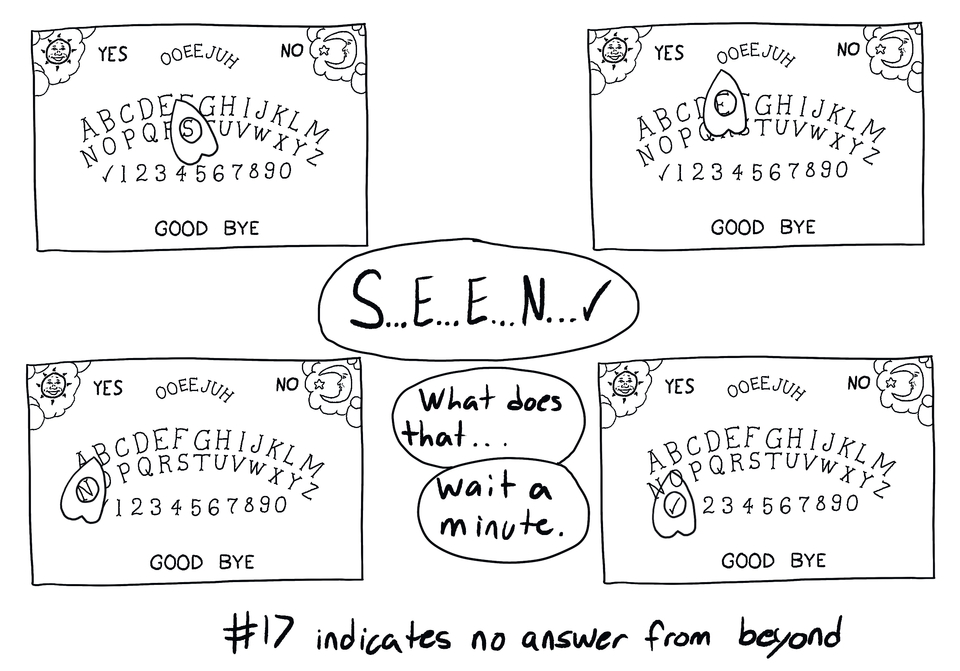 YES OOEEJUH NO
ABCDE GHIJKLM
NOPQR S TUVWXYZ
✓1234567890
GOOD BYE
YES OOEEJUH NO
ABCD E GHIJKLM
NOPQ STUVWXYZ
✓1234567890
GOOD BYE
S...E...E...N...✓
YES OOEEJUH NO
ABCDEFGHIJKLM
N PQRSTUVWXYZ
1234567890
GOOD BYE
What does
that...
wait a
minute.
YES OOEEJUH NO
ABCDEFGHIJKLM
NOPQRSTUVWXYZ
✓ 234567890
GOOD BYE
#17 indicates no answer from beyond